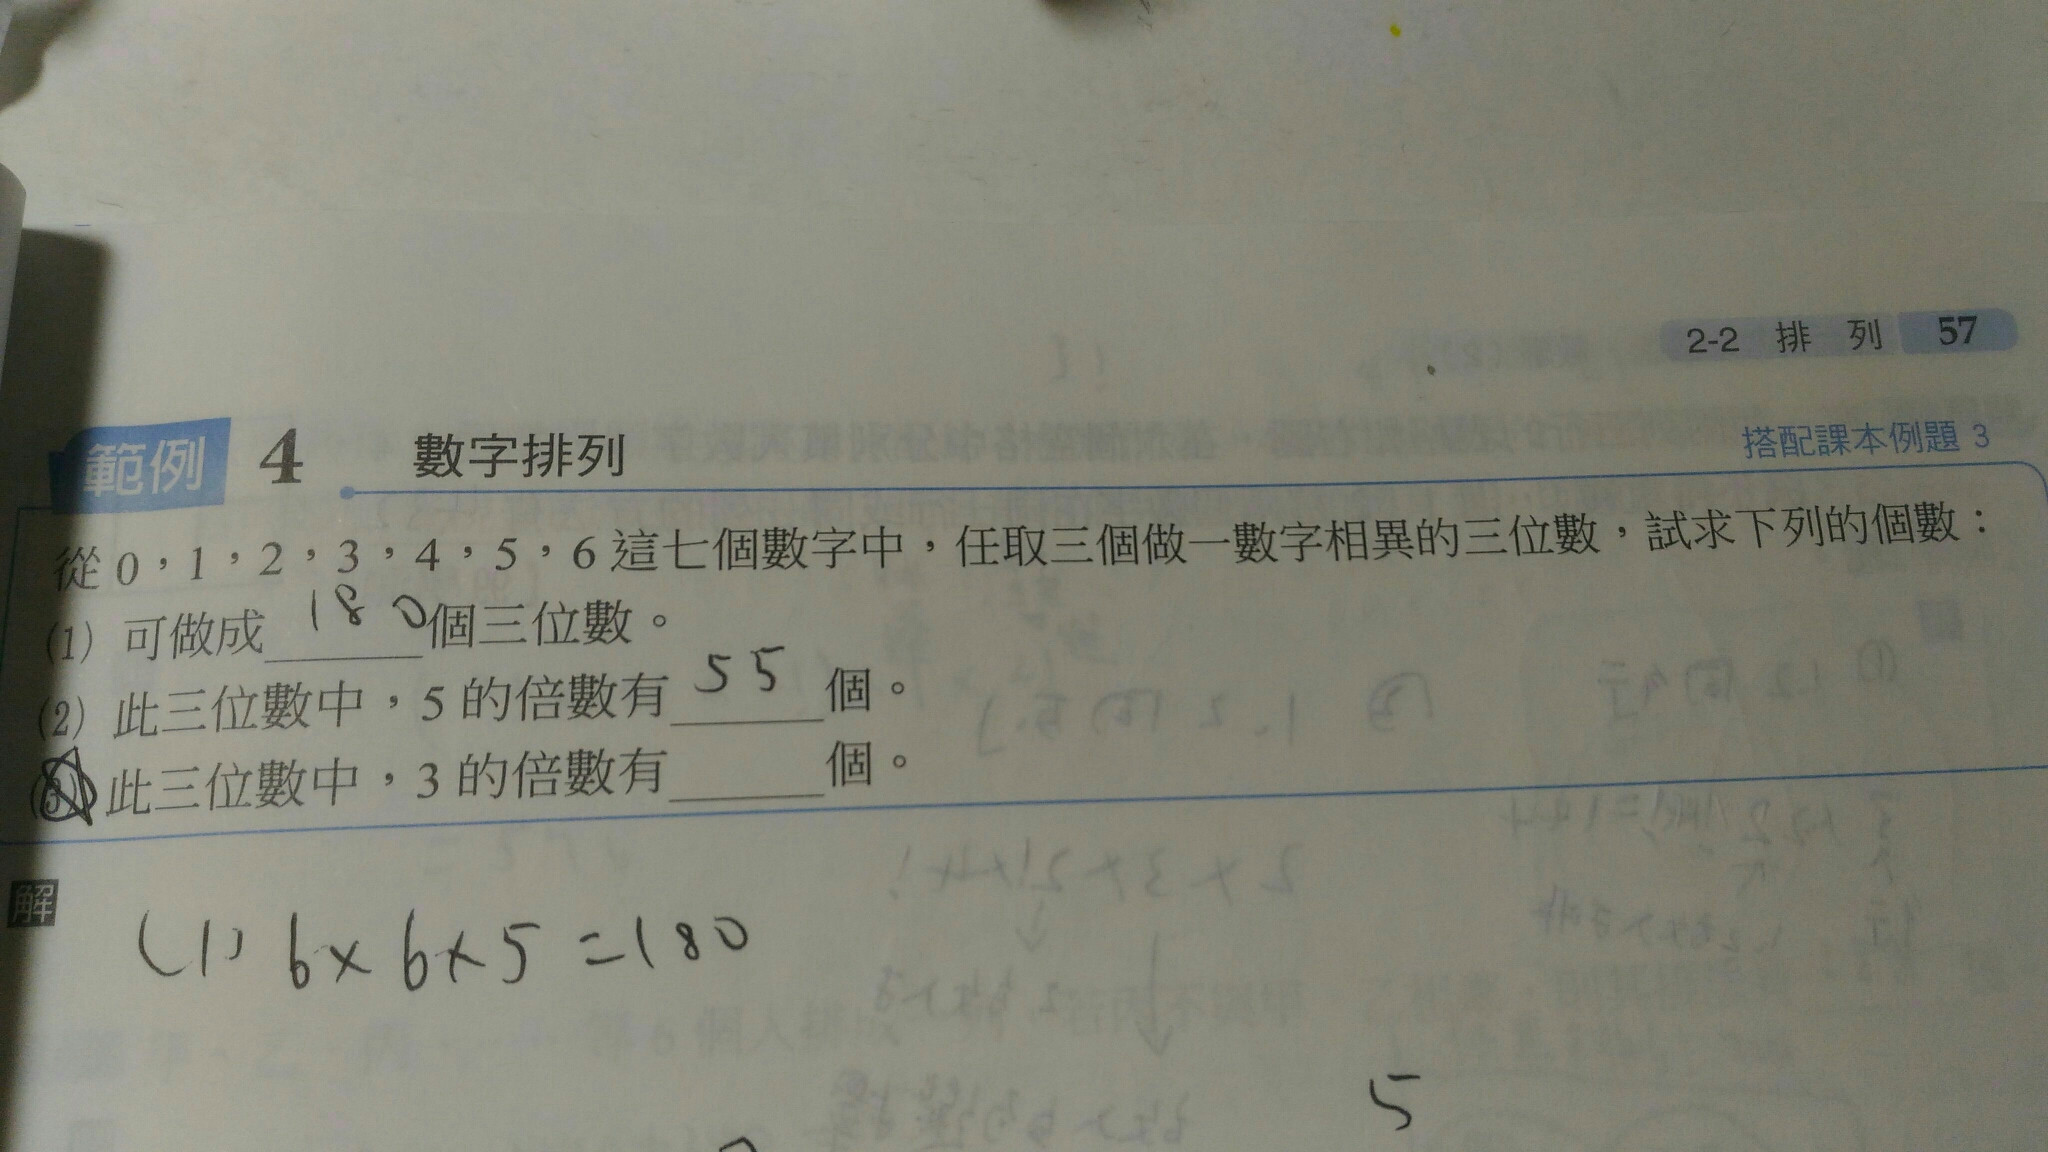 2-2 排 列 57
範例 4 數字排列 搭配課本例題 3
從 0,1,2,3,4,5,6 這七個數字中,任取三個做一數字相異的三位數,試求下列的個數:
(1) 可做成 180 個三位數。
(2) 此三位數中,5 的倍數有 55 個。
(3) 此三位數中,3 的倍數有______個。
解
(1) 6×6×5=180
5